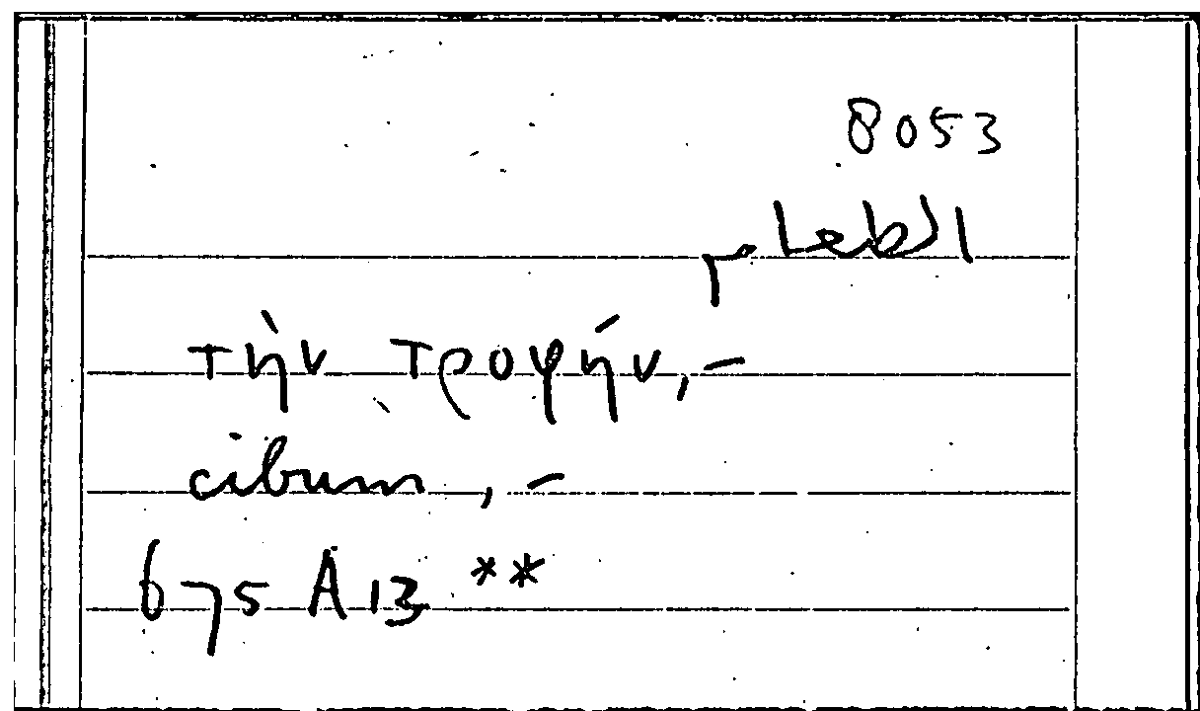 8053
الطعام
τὴν τροφήν, –
cibum, –
675 A 13 **